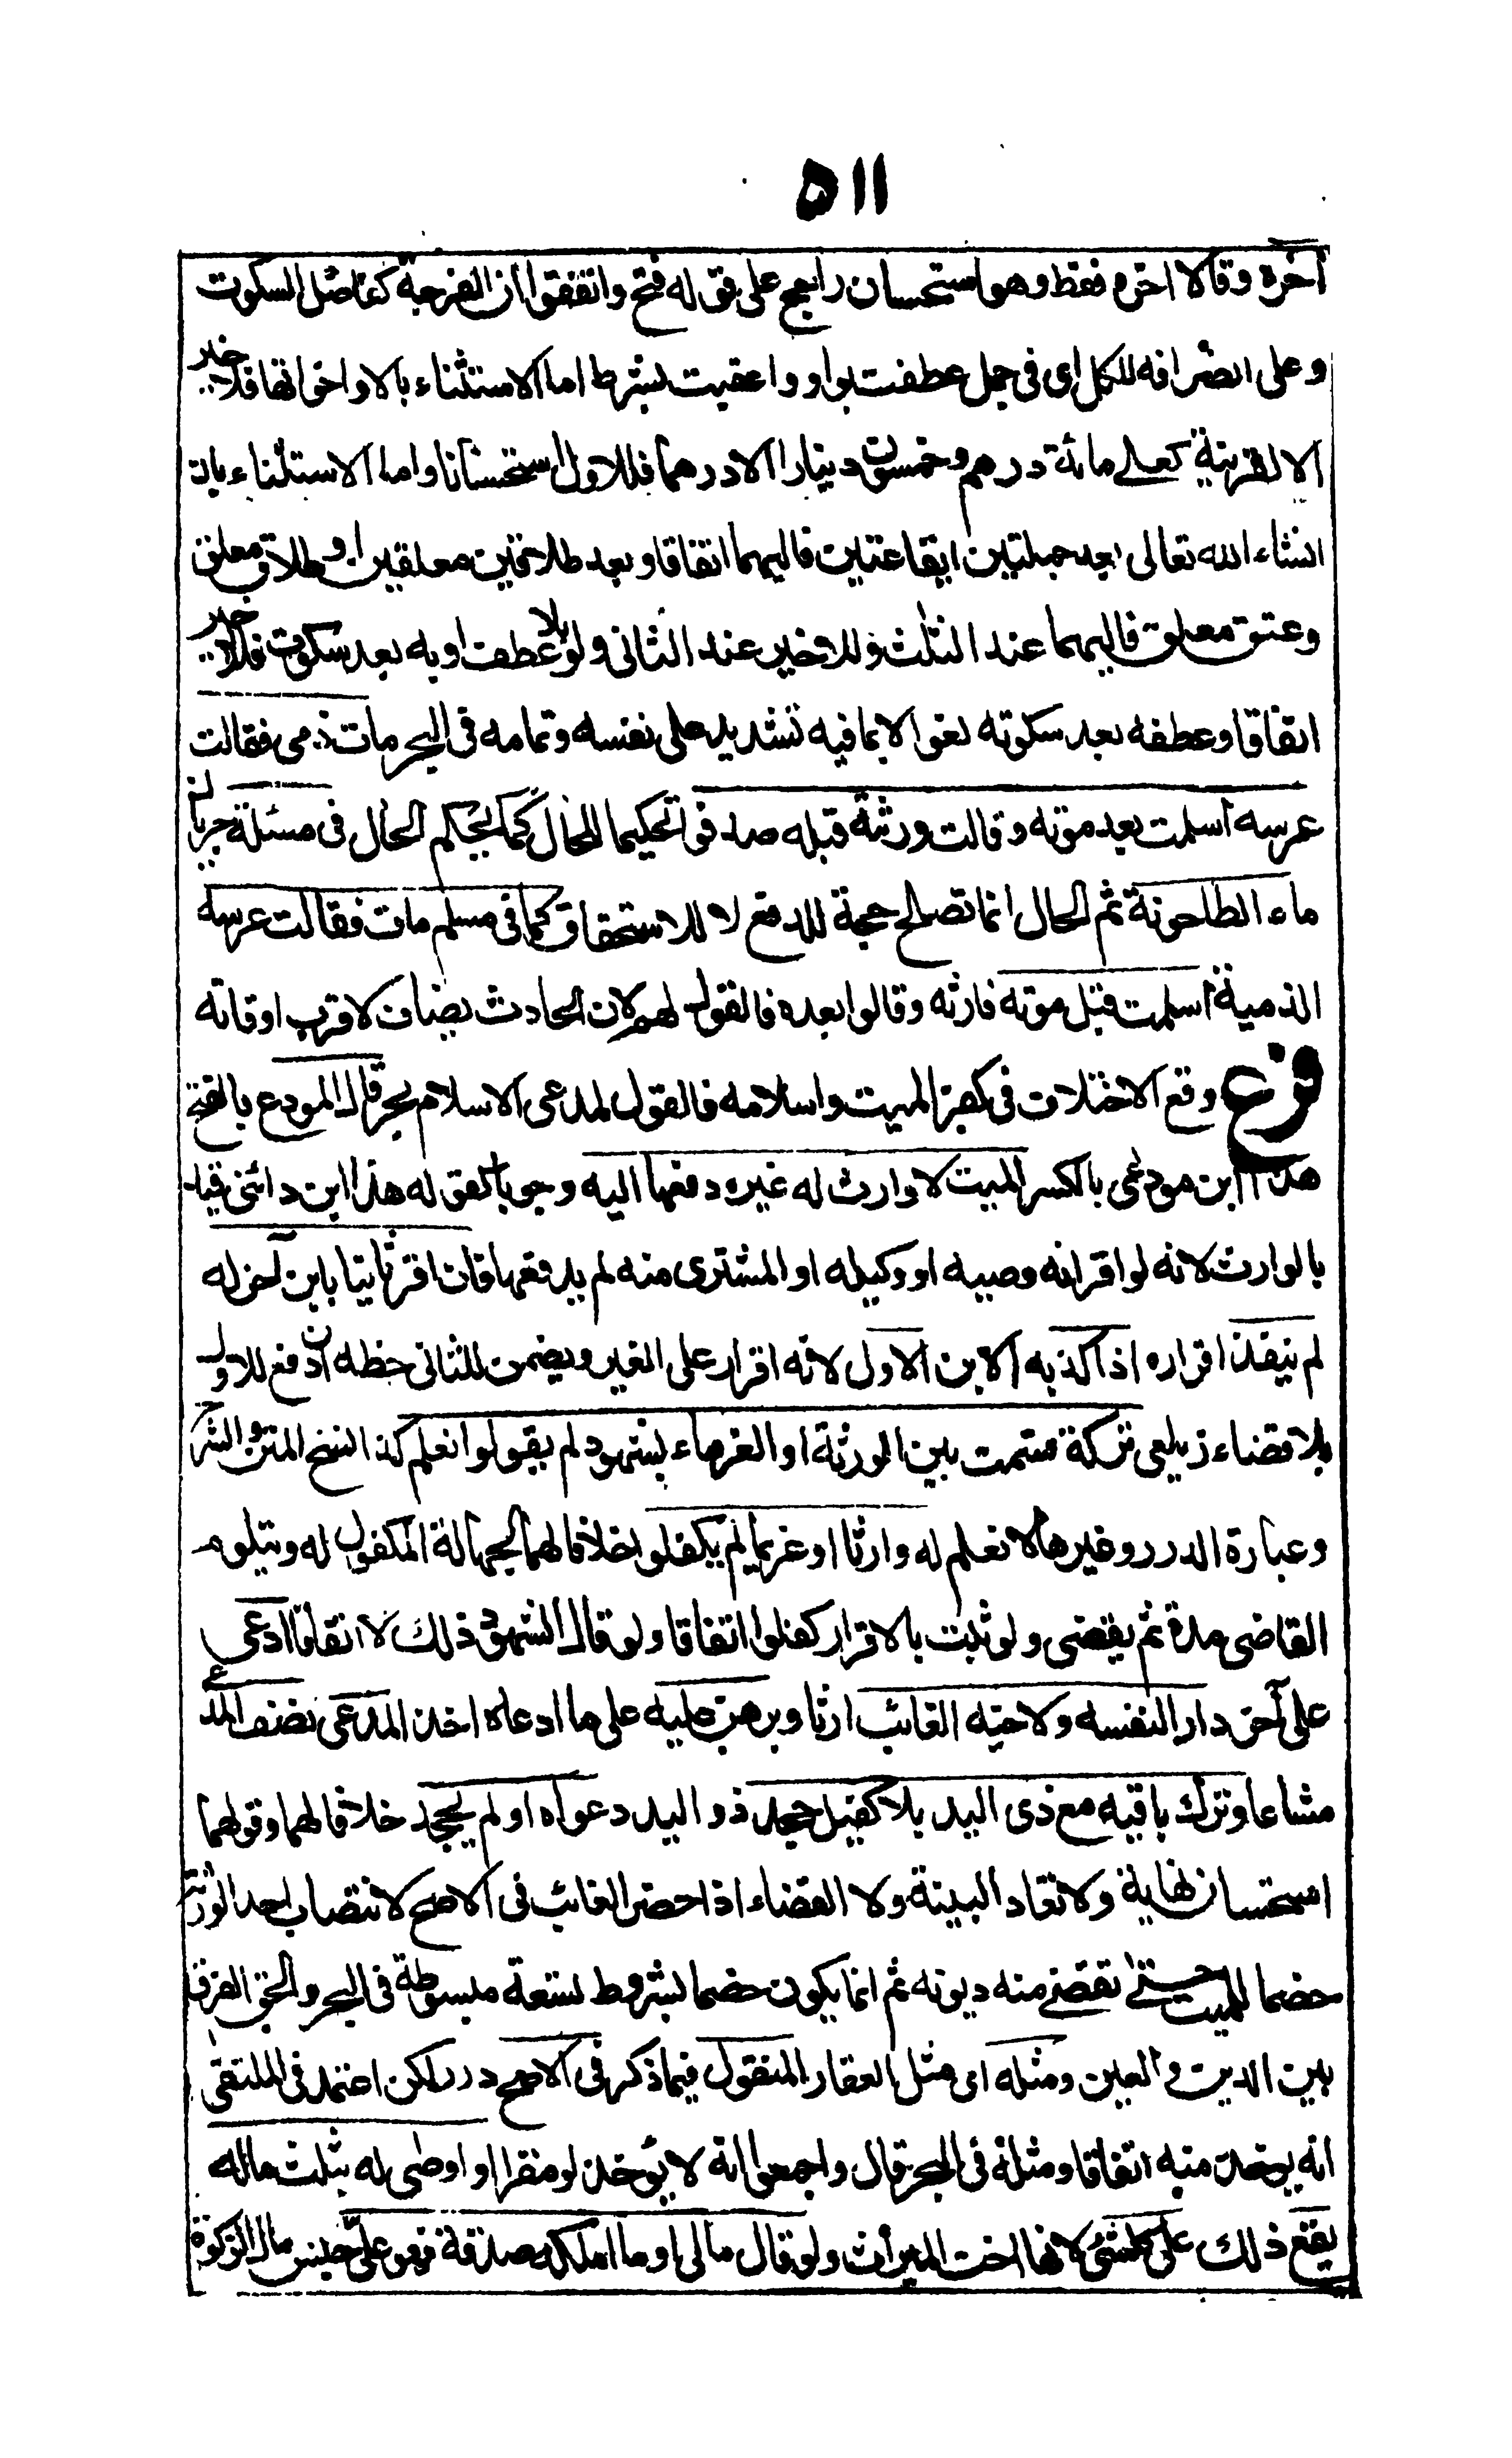 ٥١١
آخره وقالا آخره فقط وهو استحسان راجح على قوله فتح واتفقوا ان الفرجة كفاصل السكوت
وعلى انصرافه للكل اى فى جمل عطفت بواو واعقبت بشرط اما الاستثناء بالا واخواتها فللاخير
الا لقرينة كعلى مائة درهم وخمسون دينارا الا درهما فللاول استحسانا واما الاستثناء بان
انشاء الله تعالى بعد جملتين ايقاعتين فاليهما اتفاقا وبعد طلاقين معلقين او طلاق معلق
وعتق معلق فاليهما عند الثلث وللاخير عند الثانى ولو بلا عطف او به بعد سكوت فللاخير
اتفاقا وعطفه بعد سكوته لغو الا بما فيه تشديد على نفسه وتمامه فى البحر مات ذمى فقالت
عرسه اسلمت بعد موته وقالت ورثته قبله صدقوا تحكيما للحال كما يحكم الحال فى مسئلة جريان
ماء الطاحونة ثم الحال انما تصلح حجة للدفع لا للاستحقاق كما فى مسلم مات فقالت عرسه
الذمية اسلمت قبل موته فارثه وقالوا بعده فالقول لهم لان الحادث يضاف لاقرب اوقاته
فرع وقع الاختلاف فى كفر الميت واسلامه فالقول لمدعى الاسلام بحر قال المودع بالفتح
هذا ابن مودعى بالكسر الميت لا وارث له غيره دفعها اليه وجوبا كقوله هذا ابن دائنى قيد
بالوارث لانه لو اقر انه وصيه او وكيله او المشترى منه لم يدفعها فان اقر ثانيا بابن آخر له
لم ينفذ اقراره اذا كذبه الابن الاول لانه اقرار على الغير ويضمن للثانى حظه ان دفع للاول
بلا قضاء زيلعى تركة قسمت بين الورثة او الغرماء بشهود لم يقولوا نعلم كذا نسخ المتن والشرح
وعبارة الدرر وغيرها لا نعلم له وارثا او غريما لم يكفلوا خلافا لهما لجهالة المكفول له ويتلوم
القاضى مدة ثم يقضى ولو ثبت بالاقرار كفلوا اتفاقا ولو قال الشهود ذلك لا اتفاقا ادعى
على آخر دارا لنفسه ولاخيه الغائب ارثا وبرهن عليه على ما ادعاه اخذ المدعى نصف المدعى
مشاعا وترك باقيه مع ذى اليد بلا كفيل جحد ذو اليد دعواه او لم يجحد خلافا لهما وقولهما
استحسان نهاية ولا تعاد البينة ولا القضاء اذا حضر الغائب فى الاصح لانتصاب احد الورثة
خصما للميت حتى تقضى منه ديونه ثم انما يكون خصما بشروط تسعة مبسوطة فى البحر والحق الفرق
بين الدين والعين ومثله اى مثل العقار المنقول فيما ذكر فى الاصح درر لكن اعتمد فى الملتقى
انه يوخذ منه اتفاقا ومثله فى البحر قال واجمعوا انه لا يؤخذ لو مقرا او اوصى له بثلث ماله
يقع ذلك على كل شئ لانها اخت الميراث ولو قال مالى او ما املكه صدقة فهو على جنس مال الزكوة